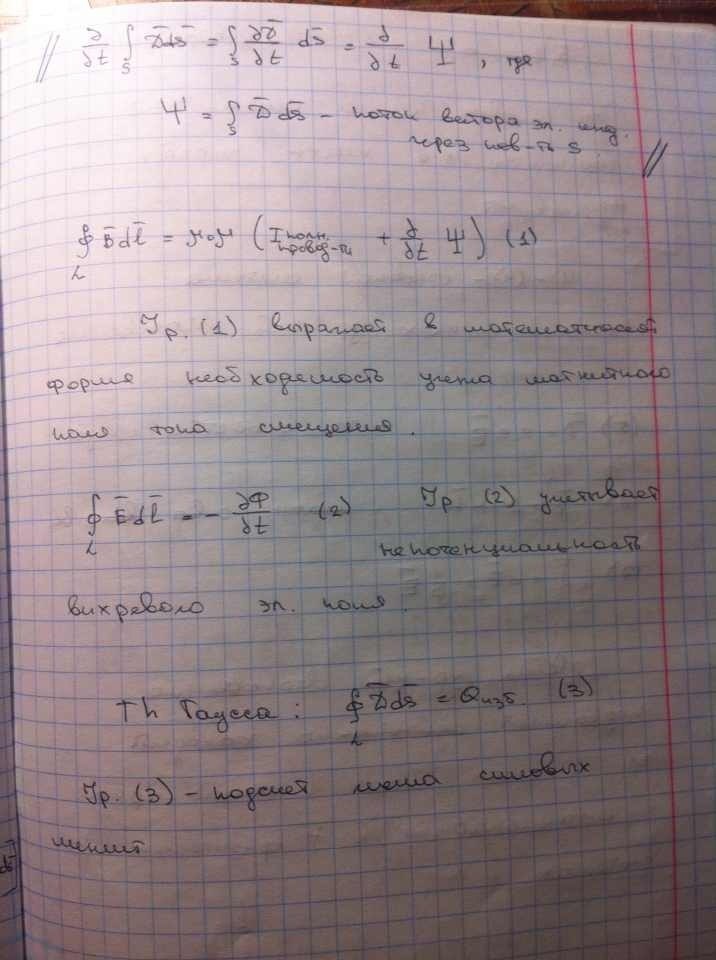 // ∂/∂t ∫_S D̄ds̄ = ∫_S ∂D̄/∂t ds̄ = ∂/∂t Ψ, где
Ψ = ∫_S D̄ds̄ – поток вектора эл. инд.
через пов-ть S. //
∮_L B̄dl̄ = μ₀μ (I полн. провод-ти + ∂/∂t Ψ) (1)
Ур. (1) выражает в математической
форме необходимость учета магнитного
поля тока смещения.
∮_L Ēdl̄ = – ∂Φ/∂t (2) Ур (2) учитывает
непотенциальность
вихревого эл. поля.
Th Гаусса: ∮_L D̄ds̄ = Qизб. (3)
Ур. (3) – подсчет числа силовых
линий